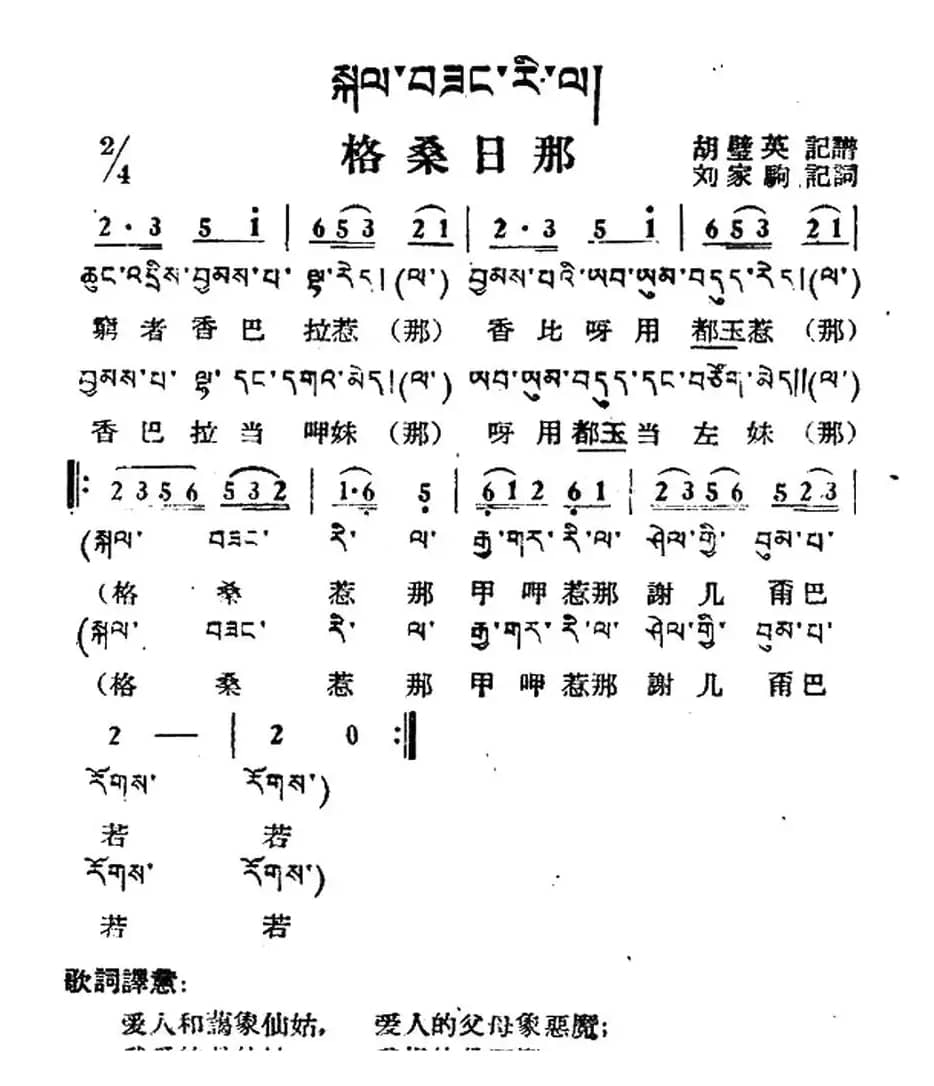 སྐལ་བཟང་རི་ལ།
格桑日那
2/4
胡璧英 記譜
刘家駒 記詞
2·3 5 i | 6 5 3 2 1 | 2·3 5 i | 6 5 3 2 1 |
ཆུང་འདྲིས་བྱམས་པ་ལྷ་རེད།(ལ་) བྱམས་པའི་ཡབ་ཡུམ་བདུད་རེད།(ལ་)
窮者香巴拉惹（那） 香比呀用都玉惹（那）
བྱམས་པ་ལྷ་དང་དགའ་མེད།(ལ་) ཡབ་ཡུམ་བདུད་དང་བཙོག་མེད།།(ལ་)
香巴拉当呷妹（那） 呀用都玉当左妹（那）
‖: 2 3 5 6 5 3 2 | 1·6 5 | 6 1 2 6 1 | 2 3 5 6 5 2 3 |
(སྐལ་ བཟང་ རི་ ལ་ རྒྱ་གར་རི་ལ་ ཤེལ་གྱི་ བུམ་པ་
（格 桑 惹 那 甲呷惹那謝几甭巴
(སྐལ་ བཟང་ རི་ ལ་ རྒྱ་གར་རི་ལ་ ཤེལ་གྱི་ བུམ་པ་
（格 桑 惹 那 甲呷惹那謝几甭巴
2 — | 2 0 :‖
རོགས་ རོགས་)
若 若
རོགས་ རོགས་)
若 若
歌詞譯意:
爱人和藹象仙姑， 爱人的父母象惡魔；